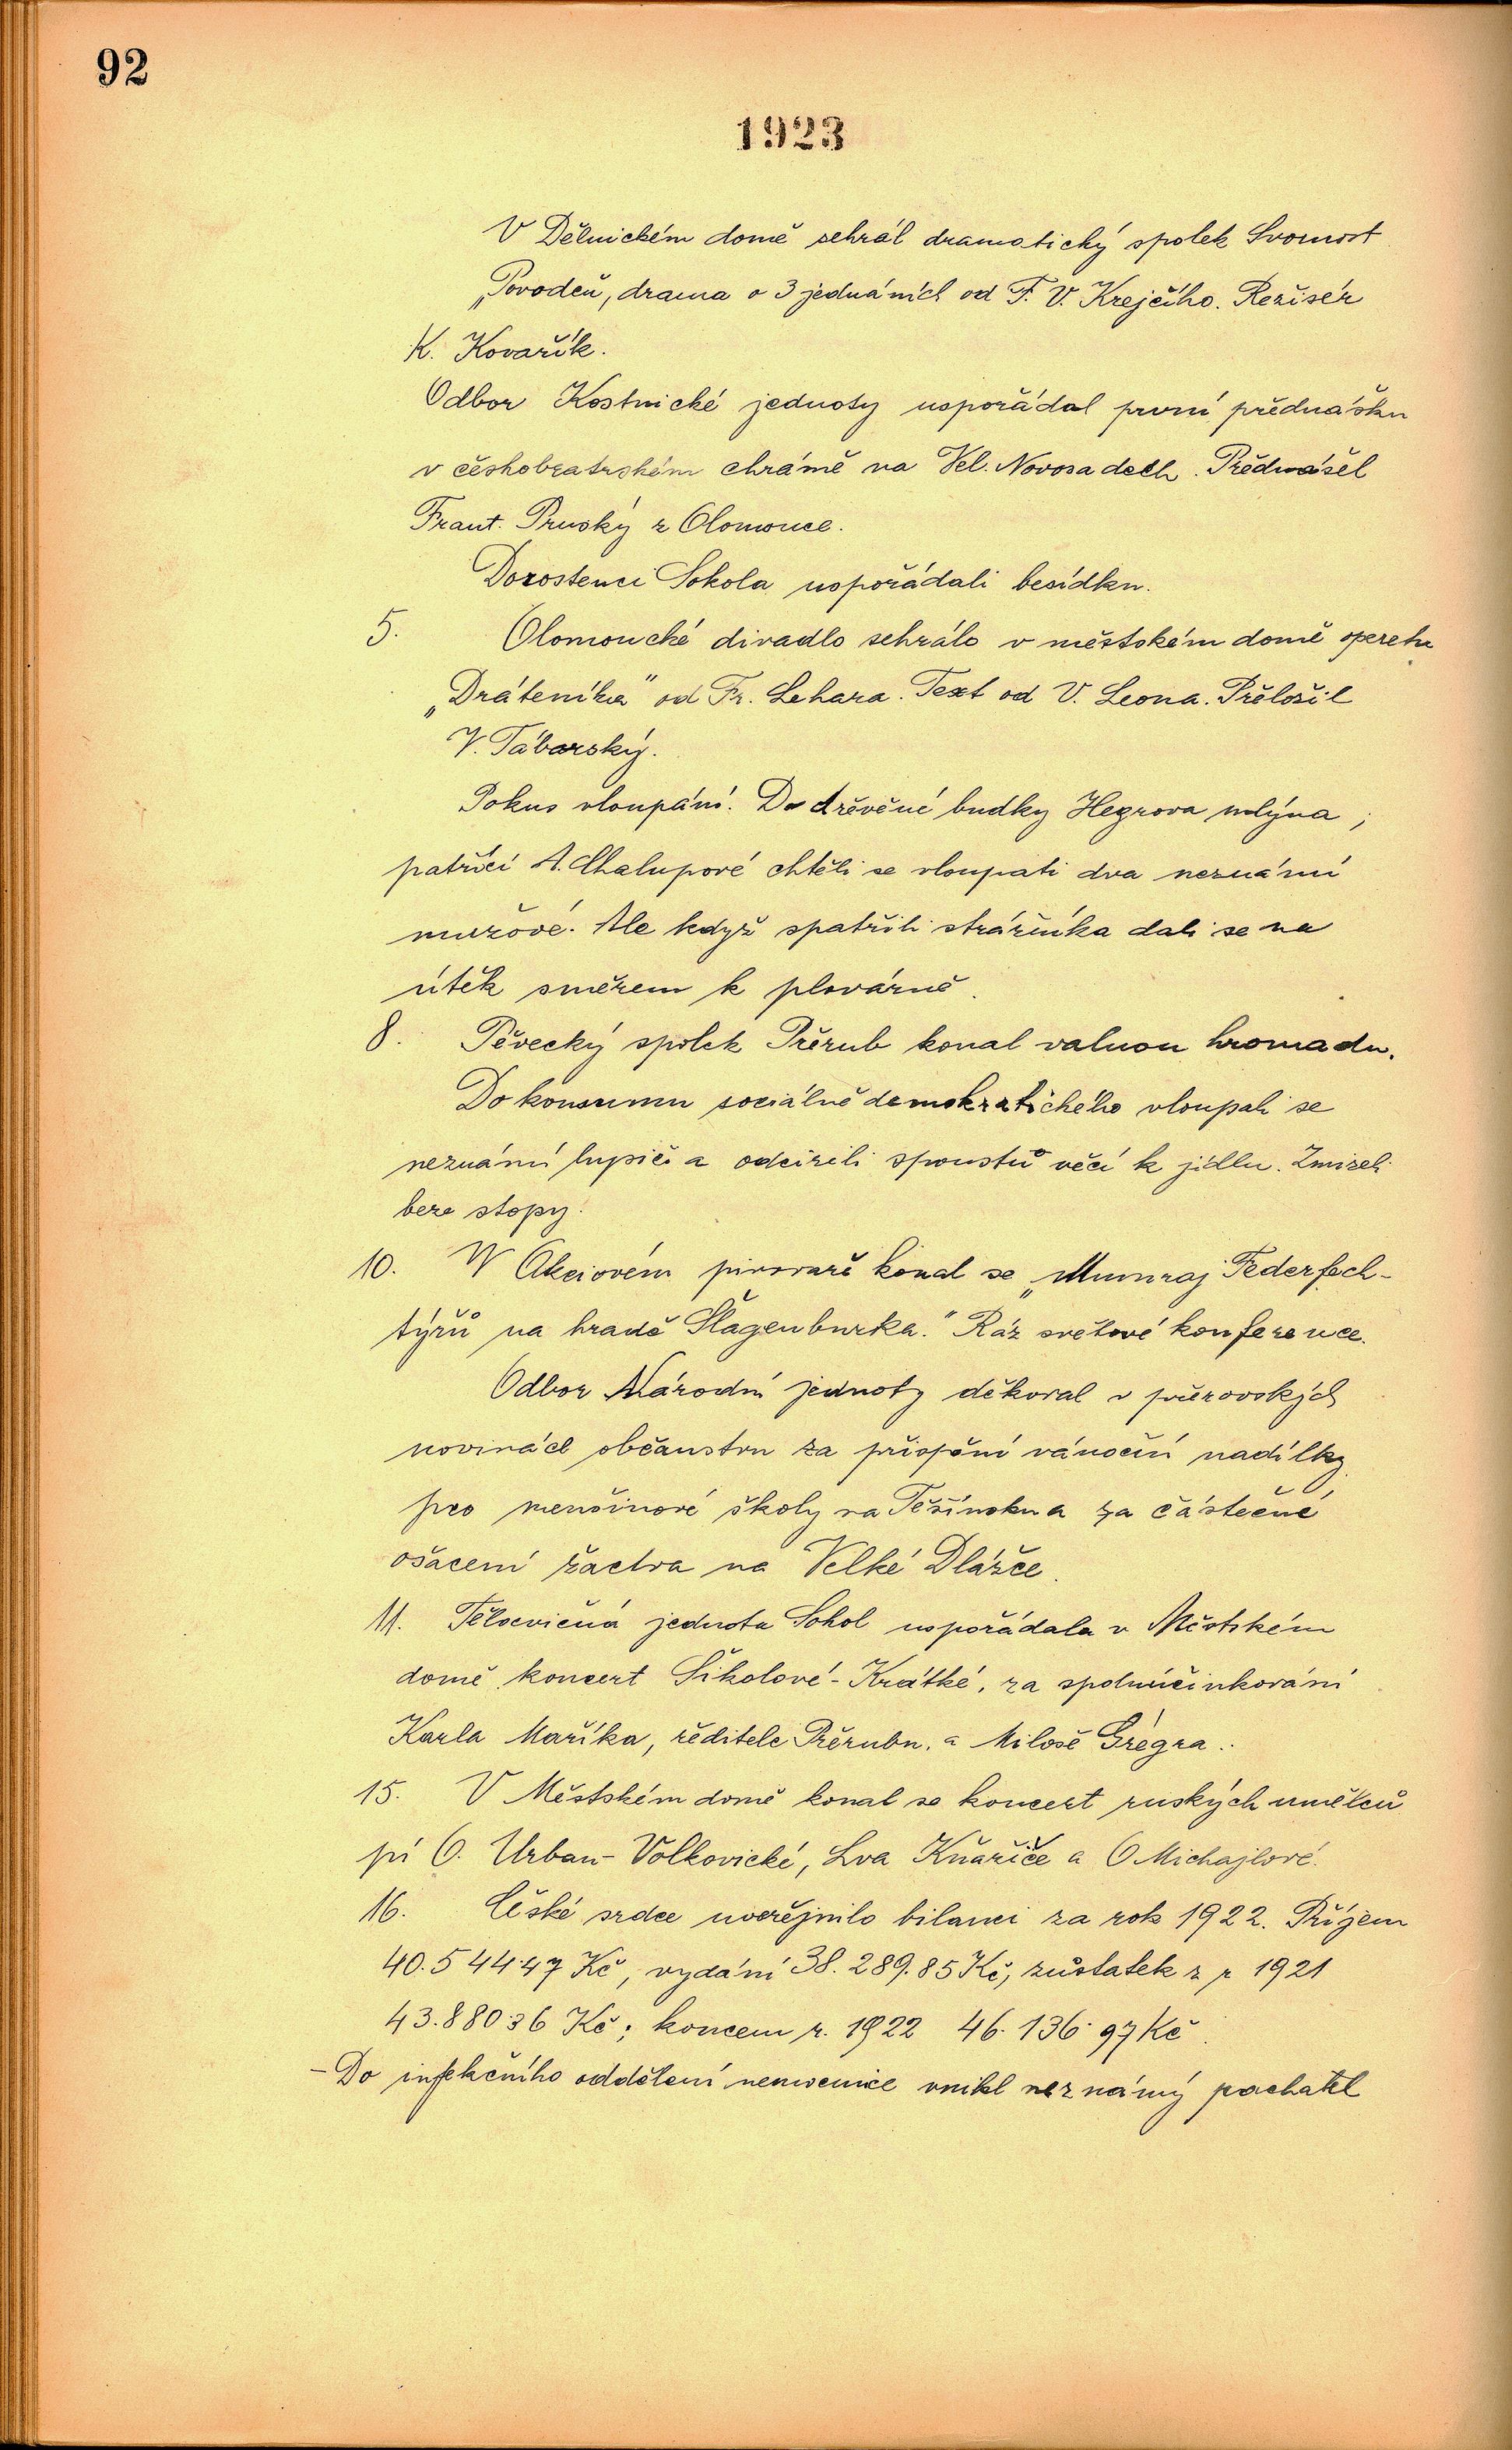 92
1923
V Dělnickém domě sehrál dramatický spolek Svornost
„Povodeň, drama o 3 jednáních od F. V. Krejčího. Režisér
K. Kovařík.
Odbor Kostnické jednoty uspořádal první přednášku
v českobratrském chrámě na Vel. Novosadech. Přednášel
Frant. Pruský z Olomouce.
Dorostenci Sokola uspořádali besídku.
5. Olomoucké divadlo sehrálo v městském domě operetu
„Dráteníka" od Fr. Lehara. Text od V. Leona. Přeložil
V. Táborský.
Pokus vloupání. Do dřevěné budky Hegrova mlýna,
patřící A. Chalupové chtěli se vloupati dva neznámí
mužové. Ale když spatřili strážníka dali se na
útěk směrem k plovárně.
8. Pěvecký spolek Přerub konal valnou hromadu.
Do konsumu sociálně demokratického vloupali se
neznámí lupiči a odcizili spoustu věcí k jídlu. Zmizeli
beze stopy.
10. V Akciovém pivovaře konal se „Mumraj Federfech-
týřů na hradě Šlágenburka." Ráz světové konference.
Odbor Národní jednoty děkoval v přerovských
novinách občanstvu za přispění vánoční nadílky
pro menšinové školy na Těšínsku a za částečné
ošacení žactva na Velké Dlážce.
11. Tělocvičná jednota Sokol uspořádala v Městském
domě koncert Šikolové-Krátké, za spoluúčinkování
Karla Maříka, ředitele Přerubu, a Miloše Grégra.
15. V Městském domě konal se koncert ruských umělců
pí O. Urban-Volkovické, Lva Kňariče a O Michajlové.
16. České srdce uveřejnilo bilanci za rok 1922. Příjem
40.544·47 Kč, vydání 38.289.85 Kč, zůstatek z r 1921
43.880·36 Kč; koncem r. 1922 46.136·97 Kč.
– Do infekčního oddělení nemocnice vnikl neznámý pachatel